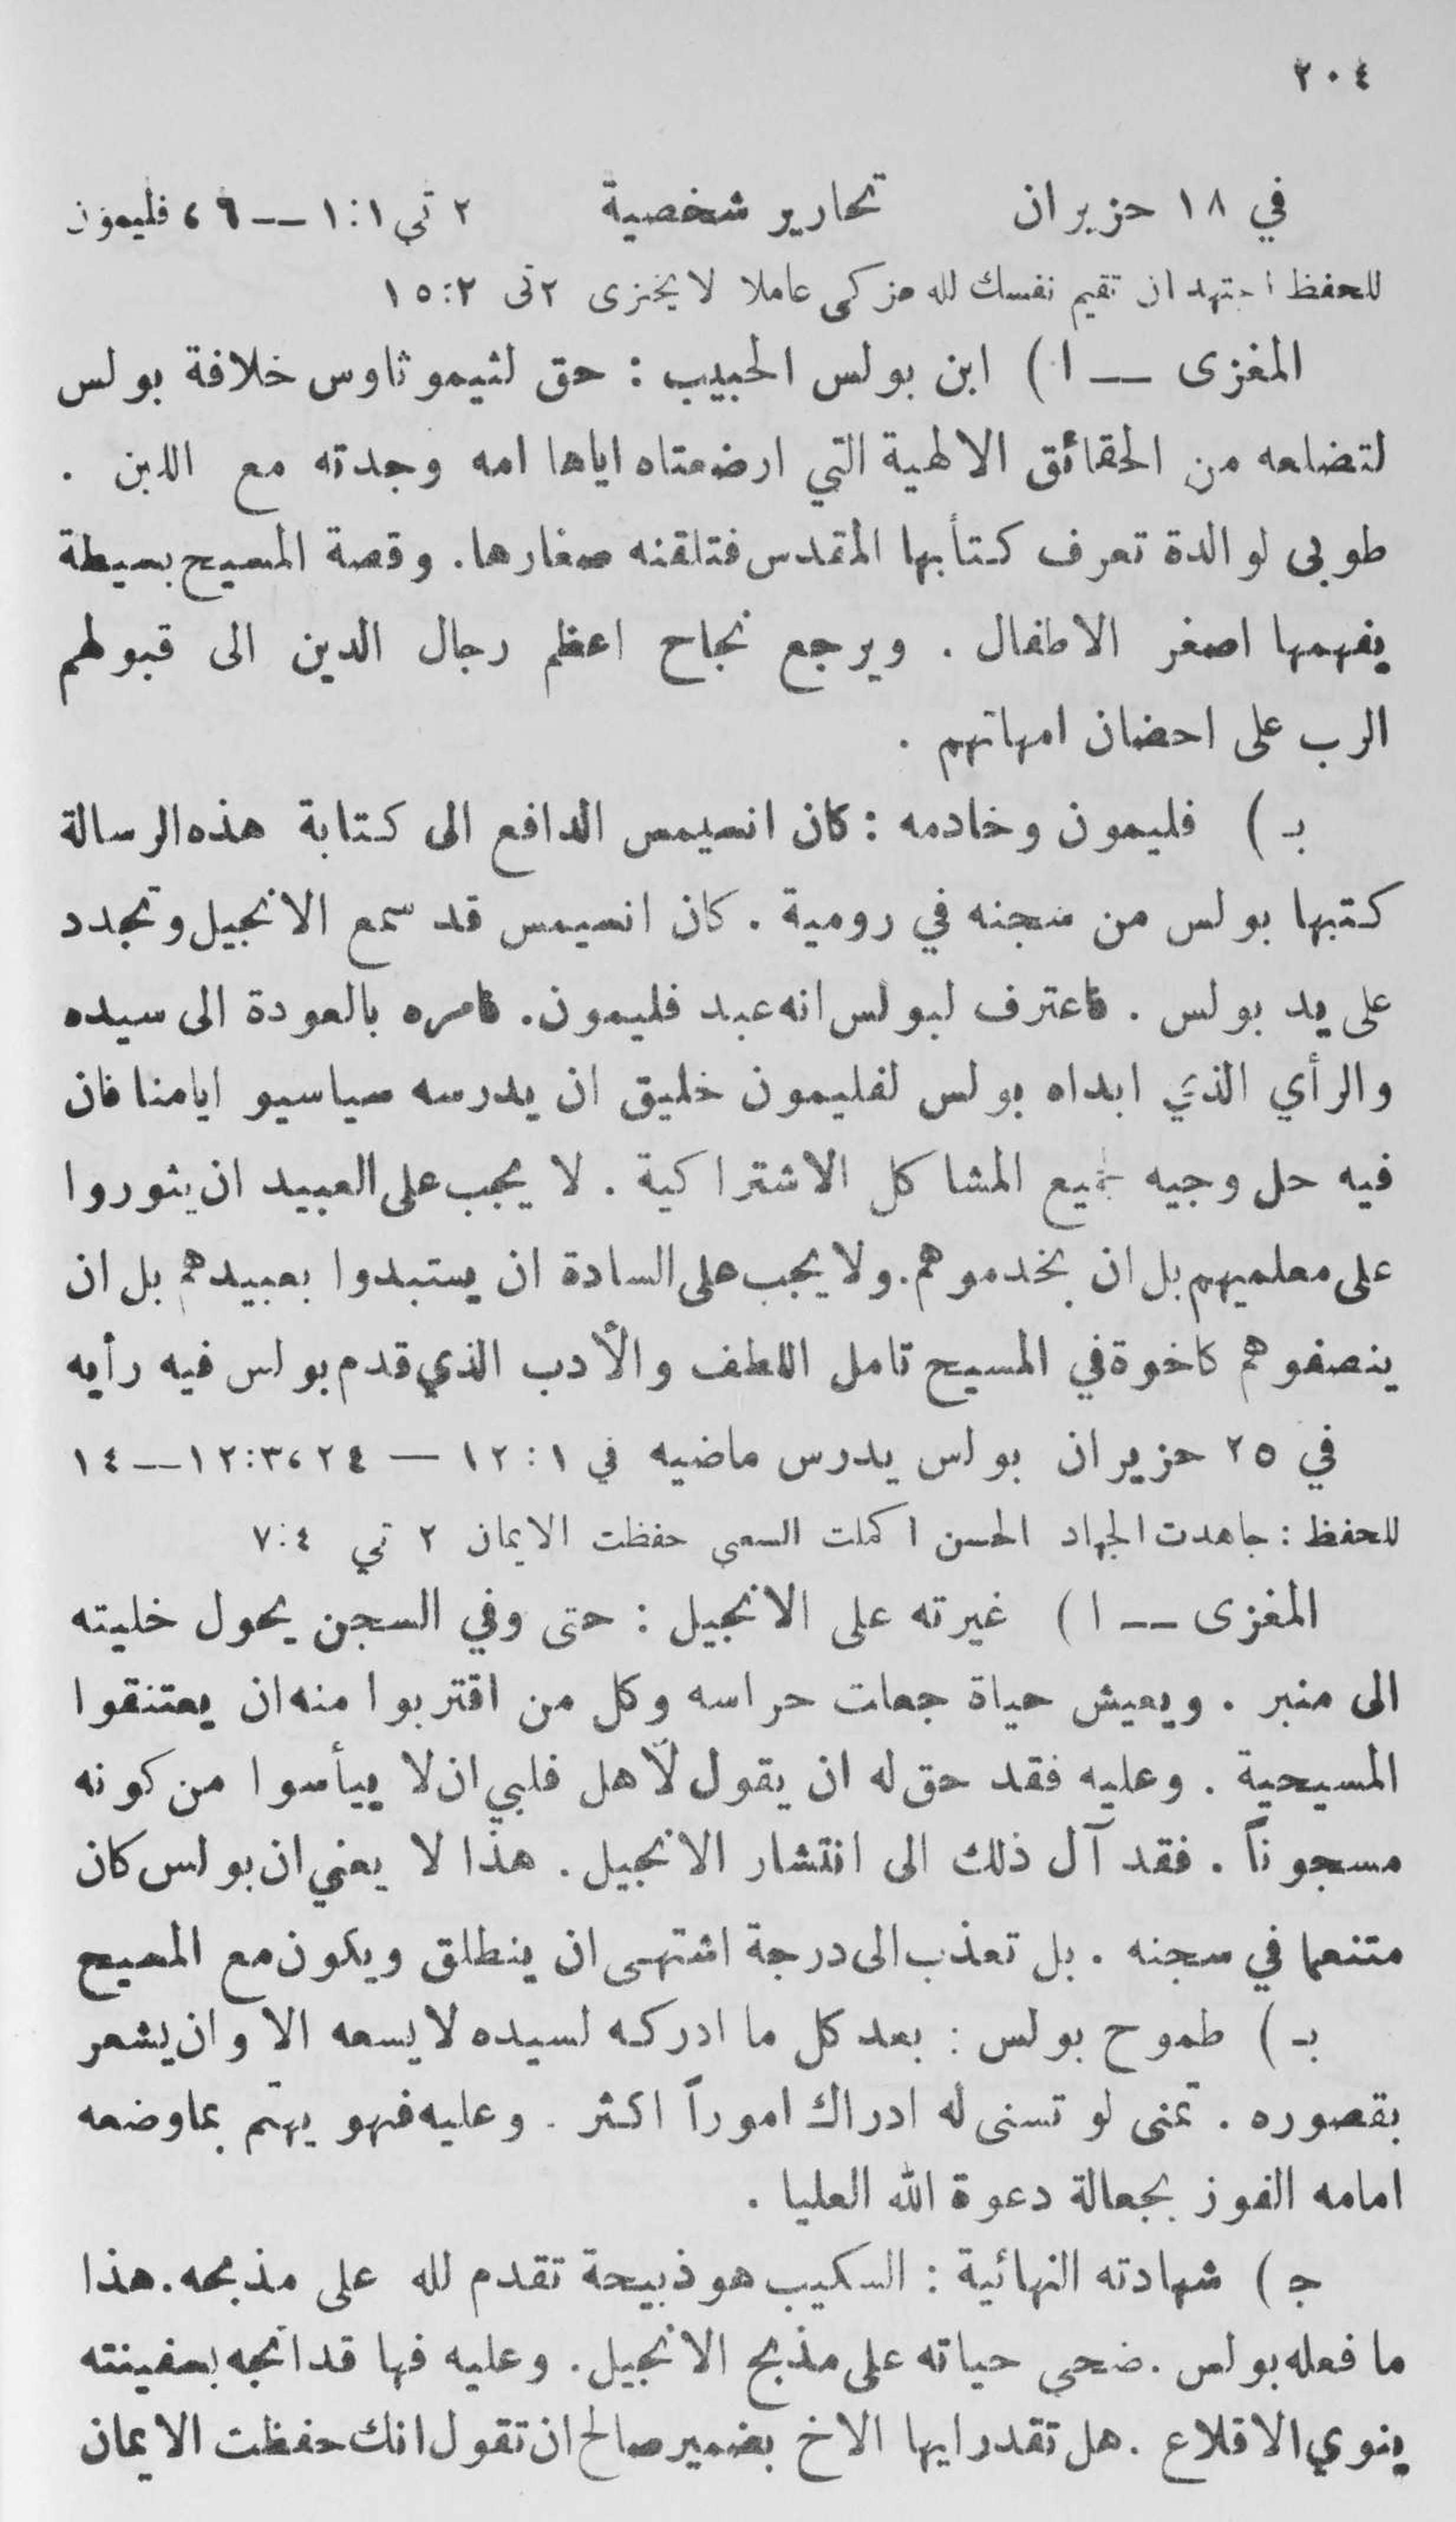 ٢٠٤
في ١٨ حزيران تحارير شخصية ٢ تي ١:١ -- ٦ ، فليمون
للحفظ اجتهد ان تقيم نفسك لله مزكى عاملا لا يخزى ٢ تى ٢:١٥
المغزى -- ا ) ابن بولس الحبيب : حق لثيموثاوس خلافة بولس
لتضلعه من الحقائق الالهية التي ارضعتاه اياها امه وجدته مع اللبن .
طوبى لوالدة تعرف كتأبها المقدس فتلقنه صغارها. وقصة المسيح بسيطة
يفهمها اصغر الاطفال . ويرجع نجاح اعظم رجال الدين الى قبولهم
الرب على احضان امهاتهم .
بـ ) فليمون وخادمه : كان انسيمس الدافع الى كتابة هذه الرسالة
كتبها بولس من سجنه في رومية . كان انسيمس قد سمع الانجيل وتجدد
على يد بولس . فاعترف لبولس انه عبد فليمون. فامره بالعودة الى سيده
والرأي الذي ابداه بولس لفليمون خليق ان يدرسه سياسيو ايامنا فان
فيه حل وجيه لجميع المشاكل الاشتراكية . لا يجب على العبيد ان يثوروا
على معلميهم بل ان يخدموهم. ولا يجب على السادة ان يستبدوا بعبيدهم بل ان
ينصفوهم كاخوة في المسيح تامل اللطف والأدب الذي قدم بولس فيه رأيه
في ٢٥ حزيران بولس يدرس ماضيه في ١ : ١٢ — ٢٤ ، ٣:١٢--١٤
للحفظ : جاهدت الجهاد الحسن اكملت السعي حفظت الايمان ٢ تي ٤:٧
المغزى -- ا ) غيرته على الانجيل : حتى وفي السجن يحول خليته
الى منبر . ويعيش حياة جعلت حراسه وكل من اقتربوا منه ان يعتنقوا
المسيحية . وعليه فقد حق له ان يقول لأهل فلبي ان لا ييأسوا من كونه
مسجوناً . فقد آل ذلك الى انتشار الانجيل . هذا لا يعني ان بولس كان
متنعما في سجنه . بل تعذب الى درجة اشتهى ان ينطلق ويكون مع المسيح
بـ ) طموح بولس : بعد كل ما ادركه لسيده لا يسعه الا وان يشعر
بقصوره . تمنى لو تسنى له ادراك اموراً اكثر . وعليه فهو يهتم بما وضعه
امامه الفوز بجعالة دعوة الله العليا .
جـ ) شهادته النهائية : السكيب هو ذبيحة تقدم لله على مذبحه. هذا
ما فعله بولس . ضحى حياته على مذبح الانجيل. وعليه فها قد اتجه بسفينته
ينوي الاقلاع . هل تقدر ايها الاخ بضمير صالح ان تقول انك حفظت الايمان